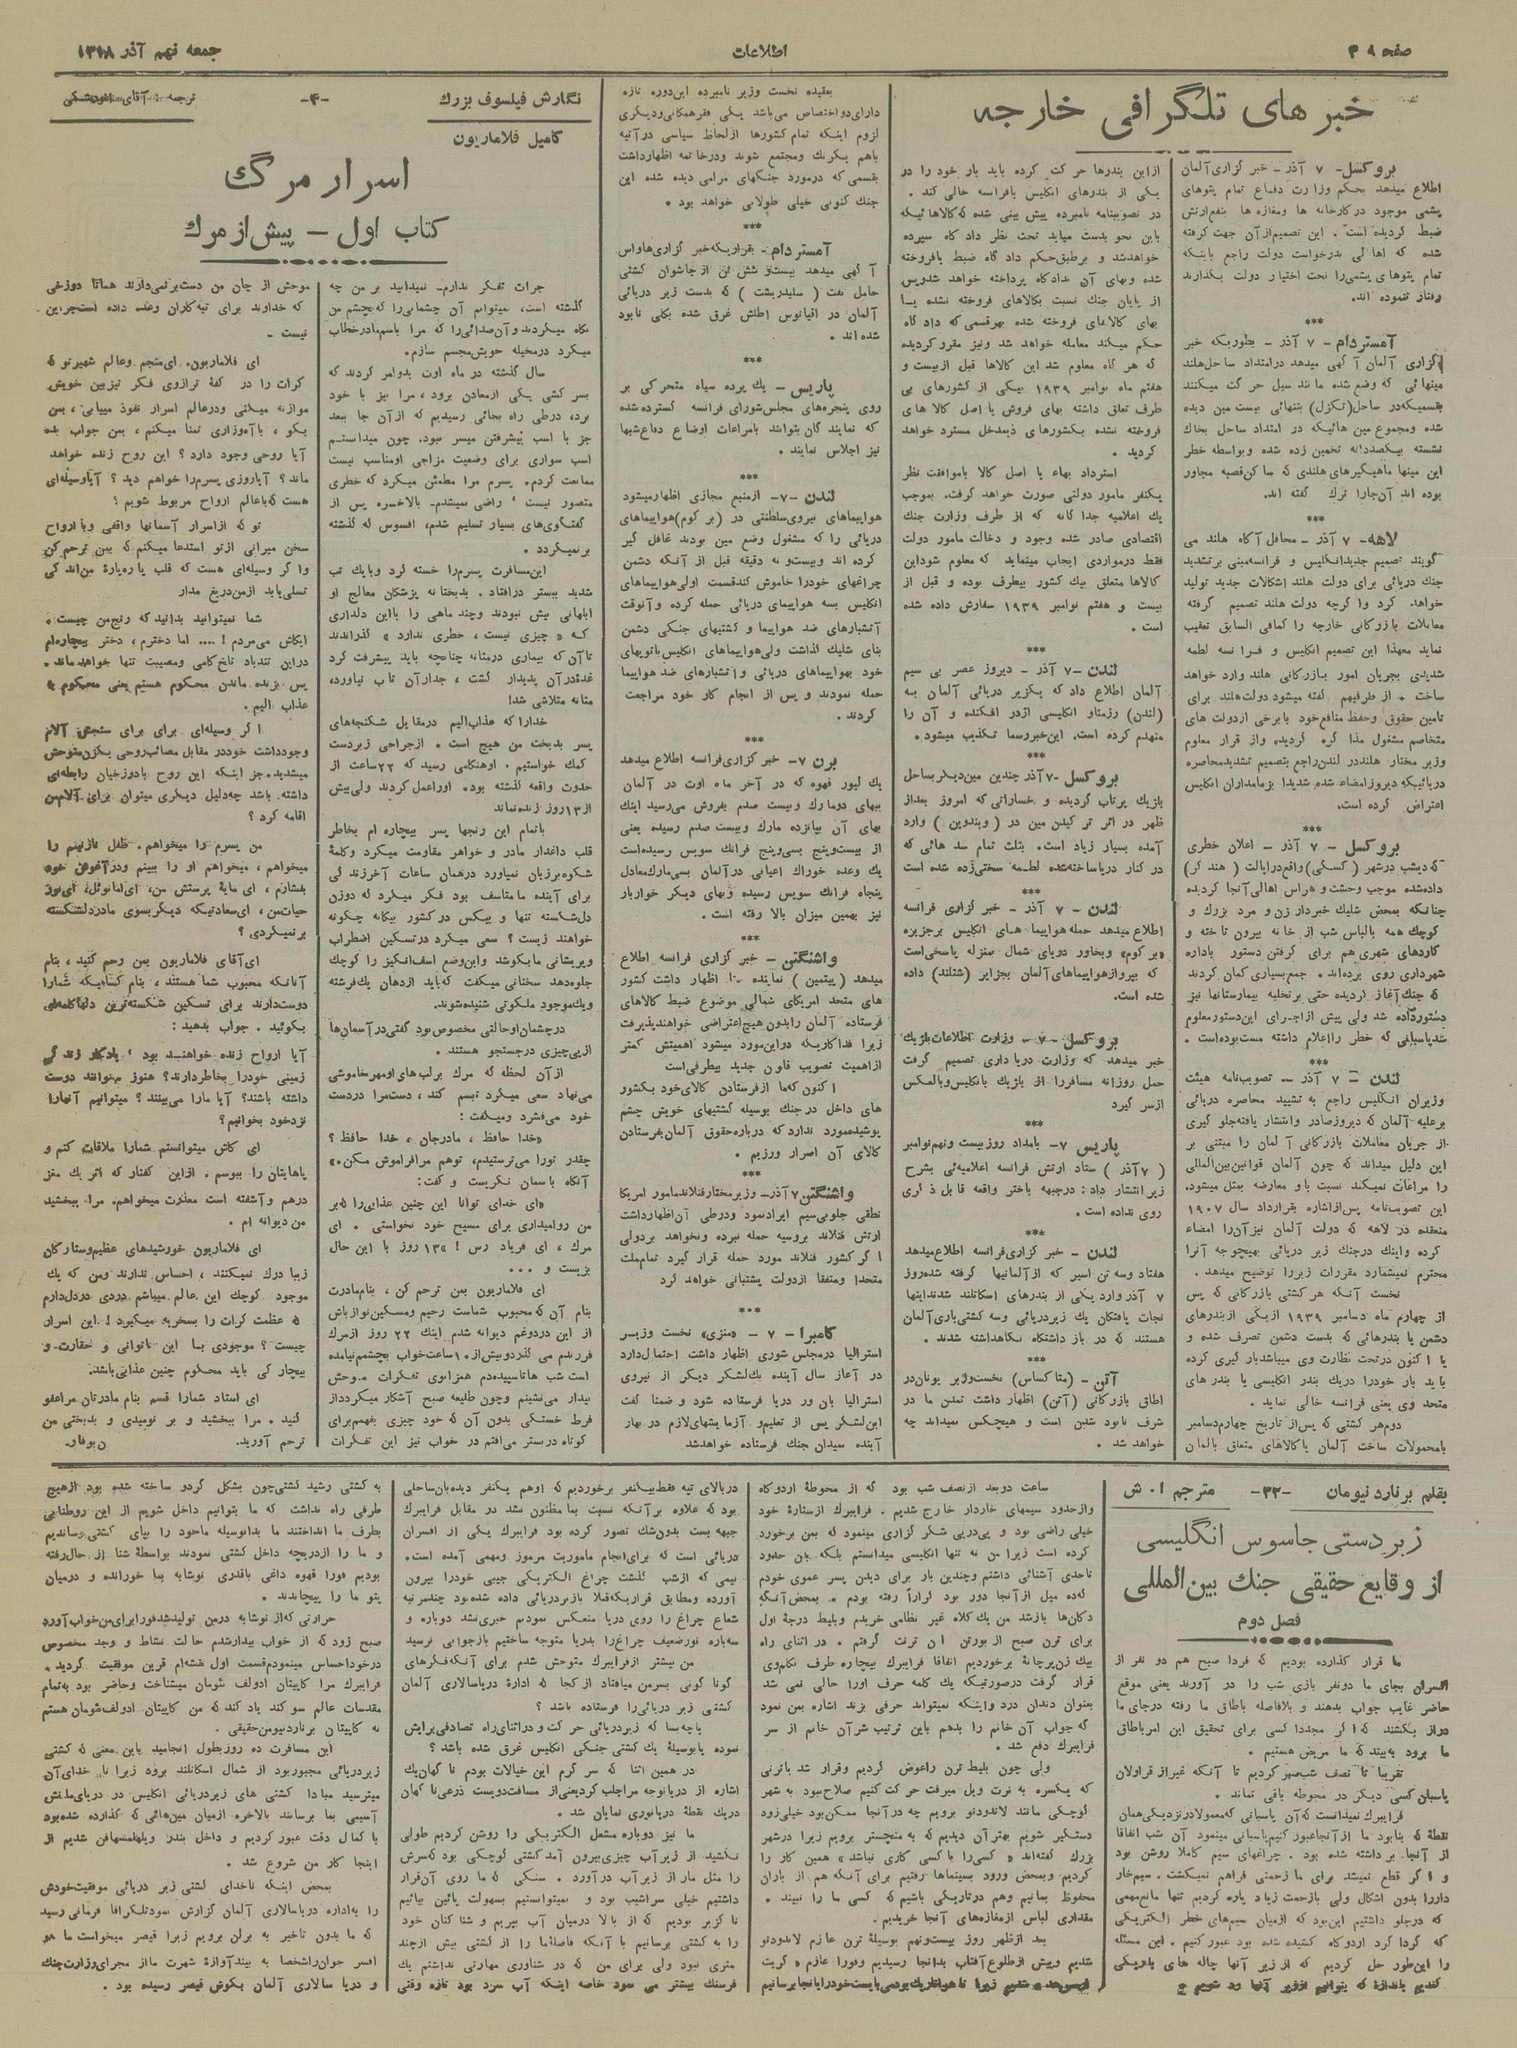 صفحه ۴
اطلاعات
جمعه نهم آذر ۱۳۱۸
خبرهای تلگرافی خارجه
بروکسل- ۷ آذر - خبر گزاری آلمان
اطلاع میدهد بحکم وزارت دفاع تمام پتوهای
پشمی موجود در کارخانه ها ومغازه ها بنفع ارتش
ضبط گردیده است. این تصمیم از آن جهت گرفته
شده که اهالی بدرخواست دولت راجع باینکه
تمام پتوهای پشمی را تحت اختیار دولت بگذارند
رفتار ننموده اند.
***
آمستردام- ۷ آذر - بطوریکه خبر
گزاری آلمان آگهی میدهد درامتداد ساحل هلند
مینهائی که وضع شده مانند سیل حرکت میکنند
شده ومجموع مین هائیکه در امتداد ساحل بخاک
نشسته بیکصددانه تخمین زده شده وبواسطه خطر
این مینها ماهیگیرهای هلندی که ساکن قصبه مجاور
بوده اند آن جارا ترک گفته اند.
***
لاهه- ۷ آذر - محافل آگاه هلند می
گویند تصمیم جدید انگلیس و فرانسه مبنی بر تشدید
جنک دریائی برای دولت هلند اشکالات جدید تولید
خواهد کرد واگرچه دولت هلند تصمیم گرفته
معاملات بازرگانی خارجه را کمافی السابق تعقیب
نماید معهذا این تصمیم انگلیس و فرانسه لطمه
شدیدی بجریان امور بازرگانی هلند وارد خواهد
ساخت
تامین حقوق وحفظ منافع خود بابرخی ازدولت های
وزیر مختار هلند در لندن راجع بتصمیم تشدید محاصره
دریائیکه دیروز امضاء شده شدیدا بزمامداران انگلیس
اعتراض کرده است.
***
بروکسل - ۷ آذر - اعلان خطری
که دیشب در شهر
داده شده موجب وحشت و هراس اهالی آنجا گردیده
چنانکه بمحض شلیک خبردار زن و مرد بزرک و
کوچک همه بالباس شب از خانه بیرون تاخته و
گاردهای شهری هم برای گرفتن دستور باداره
شهرداری روی برده اند. جمع بسیاری گمان کردند
که جنک آغاز گردیده حتی برتخلیه بیمارستانها نیز
شد پاسبانی که خطر را اعلام داشته مست بوده است.
***
لندن - ۷ آذر - تصویب نامه هیئت
وزیران انگلیس راجع به تشدید محاصره دریائی
برعلیه آلمان که دیروز صادر وانتشار یافته جلوگیری
از جریان معاملات بازرگانی آلمان را مبتنی بر
این دلیل میداند که چون آلمان قوانین بین المللی
را مراعات نمیکند نسبت باو معارضه بمثل میشود.
این تصویب نامه پس از اشاره بقرارداد سال ۱۹۰۷
منعقده در لاهه که دولت آلمان نیز آن را امضاء
کرده واینک درجنک زیر دریائی بهیچوجه آنرا
محترم نمیشمارد مقررات زیر را توضیح میدهد.
نخست آنکه هر کشتی بازرگانی که پس
از چهارم ماه دسامبر ۱۹۳۹ از یکی از بندرهای
دشمن یا بندرهائی که بدست دشمن تصرف شده و
یا اکنون درتحت نظارت وی میباشد بارگیری کرده
باید بار خودرا دریک بندر انگلیسی یا بندرهای
متحد وی یعنی فرانسه خالی نماید.
دوم هر کشتی که پس از تاریخ چهارم دسامبر
بامحمولات ساخت آلمان یاکالاهای متعلق بالمان
ازاین بندرها حرکت کرده باید بار خود را در
یکی از بندرهای انگلیس یافرانسه خالی کند.
در تصویبنامه نامبرده پیش بینی شده که کالاهائیکه
باین نحو بدست میاید تحت نظر دادگاه سپرده
خواهد شد و برطبق حکم دادگاه ضبط یافروخته
شده وبهای آن بدادگاه پرداخته خواهد شد و پس
از پایان جنک نسبت بکالاهای فروخته نشده یا
بهای کالاهای فروخته شده بهرقسمی که دادگاه
حکم میکند معامله خواهد شد ونیز مقرر گردیده
که هرگاه معلوم شد این کالاها قبل از بیست و
هفتم ماه نوامبر ۱۹۳۹ بیکی از کشورهای بی
طرف تعلق داشته بهای فروش یا اصل کالاهای
فروخته نشده بکشورهای ذیمدخل مسترد خواهد
گردید.
استرداد بهاء یا اصل کالا باموافقت نظر
یکنفر مامور دولتی صورت خواهد گرفت. بموجب
یک اعلامیه جداگانه که از طرف وزارت جنک
اقتصادی صادر شده وجود و دخالت مامور دولت
فقط درمواردی ایجاب مینماید که معلوم شود این
کالاها متعلق بیک کشور بیطرف بوده و قبل از
بیست و هفتم نوامبر ۱۹۳۹ سفارش داده شده
است.
***
لندن - ۷ آذر - دیروز عصر بی سیم
آلمان اطلاع داد که یکزیر دریائی آلمان یک
(لندن) رزمناو انگلیسی اژدر افکنده و آن را
منهدم کرده است. این خبر رسما تکذیب میشود.
***
بروکسل - ۷ آذر چندین مین دیگر بساحل
بلژیک پرتاب گردیده و خساراتی که امروز بعداز
ظهر در اثر ترکیدن مین در
آمده بسیار زیاد است. بثلث تمام سد هائی که
در کنار دریا ساخته شده لطمه سختی زده شده است
***
لندن - ۷ آذر - خبر گزاری فرانسه
اطلاع میدهد حمله هواپیماهای انگلیس برجزیره
«برکوم» وبخاور دریای شمال بمنزله پاسخی است
که بپرواز هواپیماهای آلمان بجزایر (شتلند) داده
شده است.
بروکسل - ۷- وزارت اطلاعات بلژیک
خبر میدهد که وزارت دریاداری تصمیم گرفت
حمل روزانه مسافر را از بلژیک بانگلیس وبالعکس
از سر گیرد
***
پاریس ۷- بامداد روز بیست ونهم نوامبر
(۷ آذر) ستاد ارتش فرانسه اعلامیه ئی بشرح
زیر انتشار داد: درجبهه باختر واقعه قابل ذکری
روی نداده است.
***
لندن - خبر گزاری فرانسه اطلاع میدهد
هفتاد وسه تن اسیر که از آلمانیها گرفته شده روز
۷ آذر وارد یکی از بندرهای اسکاتلند شدند اینها
نجات یافتگان یک زیر دریائی وسه کشتی باری آلمان
هستند که در بازداشتگاه نگاهداشته شدند.
***
آتن - (متاکساس) نخست وزیر یونان در
اطاق بازرگانی (آتن) اظهار داشت تمدن ما در
شرف نابود شدن است و هیچکس نمیداند چه
خواهد شد.
بعقیده نخست وزیر نامبرده این دوره تازه
دارای دو اختصاص می باشد یکی فقر همگانی ودیگری
لزوم اینکه تمام کشورها ازلحاظ سیاسی درآتیه
باهم یکرنک ومجتمع شوند ودرخاتمه اظهارداشت
بقسمی که درمورد جنگهای مرامی دیده شده این
جنک کنونی خیلی طولانی خواهد بود.
***
آمستردام - بقراریکه خبر گزاری هاواس
آگهی میدهد بیست و شش تن از جاشوان کشتی
حامل نفت
آلمان در اقیانوس اطلس غرق شده بکلی نابود
شده اند.
***
پاریس - یک پرده سیاه متحرکی بر
روی پنجره های مجلس شورای فرانسه گسترده شده
که نمایندگان بتوانند بامراعات اوضاع دفاع شبها
نیز اجلاس نمایند.
***
لندن -۷- ازمنبع مجازی اظهار میشود
هواپیماهای نیروی سلطنتی در (برکوم) هواپیماهای
دریائی را که مشغول وضع مین بودند غافل گیر
کرده اند وبیست و نه دقیقه قبل از آنکه دشمن
چراغهای خودرا خاموش کند قسمت اولی هواپیماهای
انگلیس بسه هواپیمای دریائی حمله کرده وآنوقت
آتشبارهای ضد هواپیما و کشتیهای جنگی دشمن
بنای شلیک گذاشت ولی هواپیماهای انگلیس باتوپهای
خود بهواپیماهای دریائی و آتشبارهای ضد هواپیما
حمله نمودند و پس از انجام کار خود مراجعت
کردند.
***
برن ۷- خبر گزاری فرانسه اطلاع میدهد
یک لیور قهوه که در آخر ماه اوت در آلمان
ببهای دومارک وبیست صدم بفروش می رسید اینک
بهای آن بپانزده مارک وبیست صدم رسیده یعنی
از بیست وپنج بسی وپنج فرانک سویس رسیده است
یک وعده خوراک اعیانی درآلمان بسی مارک معادل
پنجاه فرانک سویس رسیده وبهای دیگر خواربار
نیز بهمین میزان بالا رفته است.
***
واشنگتن - خبر گزاری فرانسه اطلاع
میدهد (پیتمین) نماینده اظهار داشت کشور
های متحد امریکای شمالی موضوع ضبط کالاهای
فرستاده آلمان را بدون هیچ اعتراضی خواهند پذیرفت
زیرا فداکاریکه دراین مورد میشود اهمیتش کمتر
ازاهمیت تصویب قانون جدید بیطرفی است
اکنون که ما ازفرستادن کالای خود بکشور
های داخل درجنک بوسیله کشتیهای خویش چشم
پوشیده مورد ندارد که درباره حقوق آلمان بفرستادن
کالای آن اصرار ورزیم.
***
واشنگتن ۷ آذر - وزیر مختار فنلاند مامور امریکا
نطقی جلوبی سیم ایراد نمود ودرطی آن اظهارداشت
ارتش فنلاند بروسیه حمله نبرده ونخواهد برد ولی
اگر کشور فنلاند مورد حمله قرار گیرد تمام ملت
متحدا ومتفقا ازدولت پشتیبانی خواهد کرد
***
کامبرا - ۷ - «منزی» نخست وزیر
استرالیا درمجلس شوری اظهار داشت احتمال دارد
در آغاز سال آینده یک لشکر دیگر از نیروی
استرالیا بآن ور دریا فرستاده شود و ضمنا گفت
این لشکر پس از تعلیم و آزمایشهای لازم در بهار
آینده بمیدان جنک فرستاده خواهد شد
نگارش فیلسوف بزرک
-۴-
ترجمه: آقای
کامیل فلاماریون
اسرار مرگ
کتاب اول - پیش از مرک
جرات تفکر ندارم. نمیدانید بر من چه
گذشته است، نمیتوانم آن چشمانی را که بچشم من
نگاه میکردند و آن صدائی را که مرا باسم مادر خطاب
میکرد درمخیله خویش مجسم سازم.
سال گذشته در ماه اوت بدوامر کردند که
بسر کشی یکی ازمعادن برود، مرا نیز با خود
برد، درطی راه بجائی رسیدیم که ازآن جا ببعد
جز با اسب پیشرفتن میسر نبود. چون میدانستم
اسب سواری برای وضعیت مزاجی اومناسب نیست
ممانعت کردم. پسرم مرا مطمئن میکرد که خطری
متصور نیست، راضی نمیشدم. بالاخره پس از
گفتگوی های بسیار تسلیم شدم، افسوس که گذشته
برنمیگردد.
این مسافرت پسرم را خسته کرد وبایک تب
شدید ببستر درافتاد. بدبختانه پزشکان معالج او
ابلهانی بیش نبودند وچند ماهی را بااین دلداری
که «چیزی نیست، خطری ندارد» گذراندند
تاآن که بیماری درمثانه چنانچه باید پیشرفت کرد
غده درآن پدیدار گشت، جدار آن تاب نیاورد،
مثانه متلاشی شد!
خدارا که عذاب الیم درمقابل شکنجه های
پسر بدبخت من هیچ است. ازجراحی زبردست
کمک خواستیم. اوهنگامی رسید که ۲۲ ساعت از
حدوث واقعه گذشته بود. اورا عمل کردند ولی بیش
از ۱۳ روز زنده نماند
باتمام این رنجها پسر بیچاره ام بخاطر
قلب داغدار مادر و خواهر مقاومت میکرد وکلمه
شکوه برزبان نمیاورد درهمان ساعات آخر زندگی
برای آینده ما متاسف بود فکر میکرد که دوزن
دل شکسته تنها و بیکس در کشور بیگانه چگونه
خواهند زیست؟ سعی میکرد درتسکین اضطراب
وپریشانی ما بکوشد واین وضع اسف انگیز را کوچک
جلوه دهد سخنانی میگفت که باید ازدهان یک فرشته
ویک موجود ملکوتی شنیده شوند.
درچشمان اوحالتی مخصوص بود گفتی در آسمان ها
از پی چیزی درجستجو هستند.
ازآن لحظه که مرک برلب های اومهر خاموشی
می نهاد سعی میکرد تبسم کند، دست مرا دردست
خود می فشرد ومیگفت:
«خدا حافظ، مادرجان، خدا حافظ؟
چقدر تورا می پرستیدم، توهم مرا فراموش مکن.»
آنگاه باسمان نگریست و گفت:
«ای خدای توانا این چنین عذابی را که بر
من روا میداری برای مسیح خود نخواستی. ای
مرک، ای فریاد رس! «۱۳ روز با این حال
بزیست و...
ای فلاماریون بمن ترحم کن، بنام مادرت
بنام آن که محبوب شماست رحیم ومسکین نواز باش
از این درد و غم دیوانه شدم اینک ۲۲ روز ازمرک
فرزندم می گذرد وبیش از ۱۰ ساعت خواب بچشمم نیامده
است شب ها تا سپیده دم همزانوی تفکرات موحش
بیدار می نشینم وچون طلیعه صبح آشکار میگردد از
فرط خستگی بدون آن که خود چیزی بفهمم برای
کوتاه دربستر می افتم در خواب نیز این تفکرات
موحش از جان من دست برنمیدارند همانا دوزخی
که خداوند برای تبه کاران وعده داده است جز این
نیست -
ای فلاماریون. ای منجم وعالم شهیر تو که
کرات را در کفه ترازوی فکر تیزبین خویش
موازنه میکنی ودرعالم اسرار نفوذ مییابی، بمن
بگو، تمنا میکنم، بمن جواب بده
آیا روحی وجود دارد؟ این روح زنده خواهد
ماند؟ آیا روزی پسرم را خواهم دید؟ آیا وسیله ای
هست که باعالم ارواح مربوط شویم؟
تو که ازاسرار آسمانها واقفی وبا ارواح
سخن میرانی ازتو استدعا میکنم که بمن ترحم کن
واگر وسیله ای هست که قلب پاره پاره من اندکی
تسلی یابد از من دریغ مدار
شما نمیتوانید بدانید که رنج من چیست.
ایکاش می مردم! .... اما دخترم، دختر بیچاره ام
دراین تندباد تلخ کامی ومصیبت تنها خواهد ماند.
پس بزنده ماندن محکوم هستم یعنی محکوم به
عذاب الیم.
اگر وسیله ای برای برای سنجش آلام
وجود داشت خود در مقابل مصائب روحی یکزن متوحش
میشدید. جز اینکه این روح بادوزخیان رابطه ای
داشته باشد چه دلیل دیگری میتوان برای آلام من
اقامه کرد؟
من پسرم را میخواهم. طفل نازنینم را
میخواهم، میخواهم او را ببینم ودر آغوش خود
بفشارم، ای مایه پرستش من، ای امانوئل، ای نور
حیات من، ای سعادتیکه دیگر بسوی مادر دلشکسته
برنمیگردی؟
ای آقای فلاماریون بمن رحم کنید، بنام
آنانکه محبوب شما هستند، بنام کسانیکه شما را
دوست دارند برای تسکین شکسته ترین دلها کلمه ای
بگوئید. جواب بدهید:
آیا ارواح زنده خواهند بود؟ یادگار زندگی
زمینی خود را بخاطر دارند؟ هنوز میتوانند دوست
داشته باشند؟ آیا مارا می بینند؟ میتوانیم آنها را
نزد خود بخوانیم؟
ای کاش میتوانستم شما را ملاقات کنم و
پاهایتان را ببوسم. ازاین گفتار که اثر یک مغز
درهم و آشفته است معذرت میخواهم. مرا ببخشید
من دیوانه ام.
ای فلاماریون خورشیدهای عظیم وستارگان
زیبا درک نمیکنند، احساس ندارند ومن که یک
موجود کوچک این عالم میباشم دردی دردل دارم
که عظمت کرات را بسخریه میگیرد! این اسرار
چیست؟ موجودی بسا این ناتوانی و حقارت و
بیچارگی باید محکوم چنین عذابی باشد.
ای استاد شمارا قسم بنام مادرتان مرا عفو
کنید. مرا ببخشید و بر نومیدی و بدبختی من
ترحم آورید.
ن بوفار.
بقلم برنارد نیومان
-۳۲-
مترجم ا. ش
زبردستی جاسوس انگلیسی
از وقایع حقیقی جنک بین المللی
فصل دوم
ما قرار گذارده بودیم که فردا صبح هم دو نفر از
افسران بجای ما دونفر بازی شب را در آورند یعنی موقع
حاضر غایب جواب بدهند و بلافاصله باطاق ما رفته درجای ما
دراز بکشند که اگر مجددا کسی برای تحقیق این امر باطاق
ما برود به بیند که ما مریض هستیم.
تقریبا تا نصف شب صبر کردیم تا آنکه غیر از قراولان
پاسبان کسی دیگر در محوطه باقی نماند.
فرایبرک نمیدانست که آن پاسبانی که معمولا درنزدیکی همان
نقطه که بنا بود ما از آنجا عبور کنیم پاسبانی مینمود آن شب اتفاقا
از آنجا برداشته شده بود. چراغهای سیم کاملا روشن بود
و اگر قطع نمیشد برای ما زحمتی فراهم نمیگشت. سیم خار
داررا بدون اشکال ولی بازحمت زیاد پاره کردیم تنها مانع مهمی
که درجلو داشتیم این بود که ازمیان سیم های خطر الکتریکی
که گرداگرد اردوگاه کشیده شده بود عبور کنیم. این مسئله
را این طور حل کردیم که از زیر آنها چاله های باریکی
کندیم باندازه که بتوانیم از زیر آنها رد شویم و
ساعت دوبعد ازنصف شب بود که از محوطه اردوگاه
وازحدود سیمهای خاردار خارج شدیم. فرایبرک ازستاره خود
خیلی راضی بود و پی درپی شکرگزاری مینمود که بمن برخورد
کرده است زیرا من نه تنها انگلیسی میدانستم بلکه بآن حدود
تاحدی آشنائی داشتم وچندین بار برای دیدن پسر عموی خودم
که ده میل از آنجا دور بود کرارا رفته بودم. بمحض آنکه
دکان ها باز شد من یک کلاه غیر نظامی خریدم وبلیط درجه اول
برای ترن صبح از بورتن آن ترنت گرفتم. دراثنای راه
بیک زن پرچانه برخوردیم اتفاقا فرایبرک بیچاره طرف تکلم وی
قرار گرفت درصورتیکه یک کلمه حرف اورا حالی نمی شد
بعنوان دندان درد واینکه نمیتواند حرفی بزند اشاره بمن نمود
که جواب آن خانم را بدهم باین ترتیب شر آن خانم از سر
فرایبرک دفع شد.
ولی چون بلیط ترن راعوض کردیم وقرار شد باترنی
که یکسره به نرت ویل میرفت حرکت کنیم صلاح بود به شهر
کوچکی مانند لاندودنو برویم چه در آنجا ممکن بود خیلی زود
دستگیر شویم بهتر آن دیدیم که به منچستر برویم زیرا درشهر
بزرگ گفته اند «کسی را با کسی کاری نباشد» همین کار را
کردیم وبمحض ورود بسینماها رفتیم برای آنکه هم از باران
محفوظ بمانیم وهم درتاریکی باشیم که کسی ما را نبیند.
مقداری لباس ازمغازه های آنجا خریدیم.
بعد ازظهر روز بیست ونهم بوسیله ترن عازم لاندودنو
شدیم وپیش ازطلوع آفتاب بدانجا رسیدیم وفورا عازم
دربالای تپه فقط بیکنفر برخوردیم که اوهم یکنفر دیده بان ساحلی
بود که علاوه برآنکه نسبت بما مظنون نشد در مقابل فرایبرک
جبهه بست بدون شک تصور کرده بود فرایبرک یکی از افسران
دریائی است که برای انجام ماموریت مرموز ومهمی آمده است.
نیمی که ازشب گذشت چراغ الکتریکی جیبی خودرا بیرون
آورده ومطابق قراریکه قبلا بازیر دریائی داده شده بود چندمرتبه
شعاع چراغ را روی دریا منعکس نمودم خبری نشد دوباره و
سه باره نور ضعیف چراغ را بدریا متوجه ساختیم بازجوابی نرسید
من بیشتر ازفرایبرک متوحش شدم برای آنکه فکرهای
گونا گونی بسر من میافتاد از کجا که اداره دریاسالاری آلمان
کشتی زیر دریائی را فرستاده باشد؟
یا چه بسا که زیر دریائی حرکت و دراثنای راه تصادفی برایش
نموده یابوسیله یک کشتی جنگی انگلیس غرق شده باشد؟
در همین اثنا که سر گرم این خیالات بودم ناگهان یک
اشاره از دریا توجه مرا جلب کرد یعنی از مسافت دویست ذرعی ناگهان
دریک نقطه دریا نوری نمایان شد.
ما نیز دوباره مشعل الکتریکی را روشن کردیم طولی
نکشید از زیر آب چیزی بیرون آمد کشتی کوچکی بود که سرش
را مثل مار از زیر آب درآورد. سنگی که ما روی آن قرار
داشتیم خیلی سراشیب بود و نمیتوانستیم بسهولت پائین بیائیم
ناگزیر بودیم که از بالا درمیان آب بپریم و شنا کنان خود
را به کشتی برسانیم با آنکه فاصله ما را از کشتی بیش ازچند
متری نبود ولی برای من که در شناوری مهارتی نداشتم یک
فرسنگ بیشتر می نمود خاصه اینکه آب سرد بود تازه وقتی
به کشتی رسید کشتی چون بشکل گردو ساخته شده بود ازهیچ
طرفی راه نداشت که ما بتوانیم داخل شویم از این رو طنابی
بطرف ما انداختند ما بدانوسیله ماخود را بپای کشتی رساندیم
و ما را ازدریچه داخل کشتی نمودند بواسطه شنا از حال رفته
بودیم فورا قهوه داغی باقدری نوشابه بما خورانده و درمیان
پتو ما را پیچاندند.
حرارتی که از نوشابه درمن تولید شد فورا برای من خواب آورد
صبح زود که از خواب بیدار شدم حالت نشاط و وجد مخصوصی
درخود احساس مینمودم قسمت اول نقشه ام قرین موفقیت گردید.
فرایبرک مرا کاپیتان ادولف شومان میشناخت وحاضر بود به تمام
مقدسات عالم سوگند یاد کند که من کاپیتان ادولف شومان هستم
نه کاپیتان برنارد نیومن حقیقی.
این مسافرت ده روز بطول انجامید باین معنی که کشتی
زیردریائی مجبور بود از شمال اسکاتلند برود زیرا ناخدای آن
میترسید مبادا کشتی های زیر دریائی انگلیس در دریای مانش
آسیبی بما برسانند بالاخره ازمیان مین هائی که گذارده شده بود
با کمال دقت عبور کردیم و داخل بندر ویلهلمسهافن شدیم از
اینجا کار من شروع شد.
بمحض اینکه ناخدای کشتی زیر دریائی موفقیت خودش
را به اداره دریاسالاری آلمان گزارش نمود تلگرافا فرمانی رسید
که ما بدون تاخیر به برلن برویم زیرا قیصر میخواست ما هر دو
افسر جوان را شخصا به بیند آوازه شهرت ما از مجرای وزارت جنک
و دریا سالاری آلمان بگوش قیصر رسیده بود.